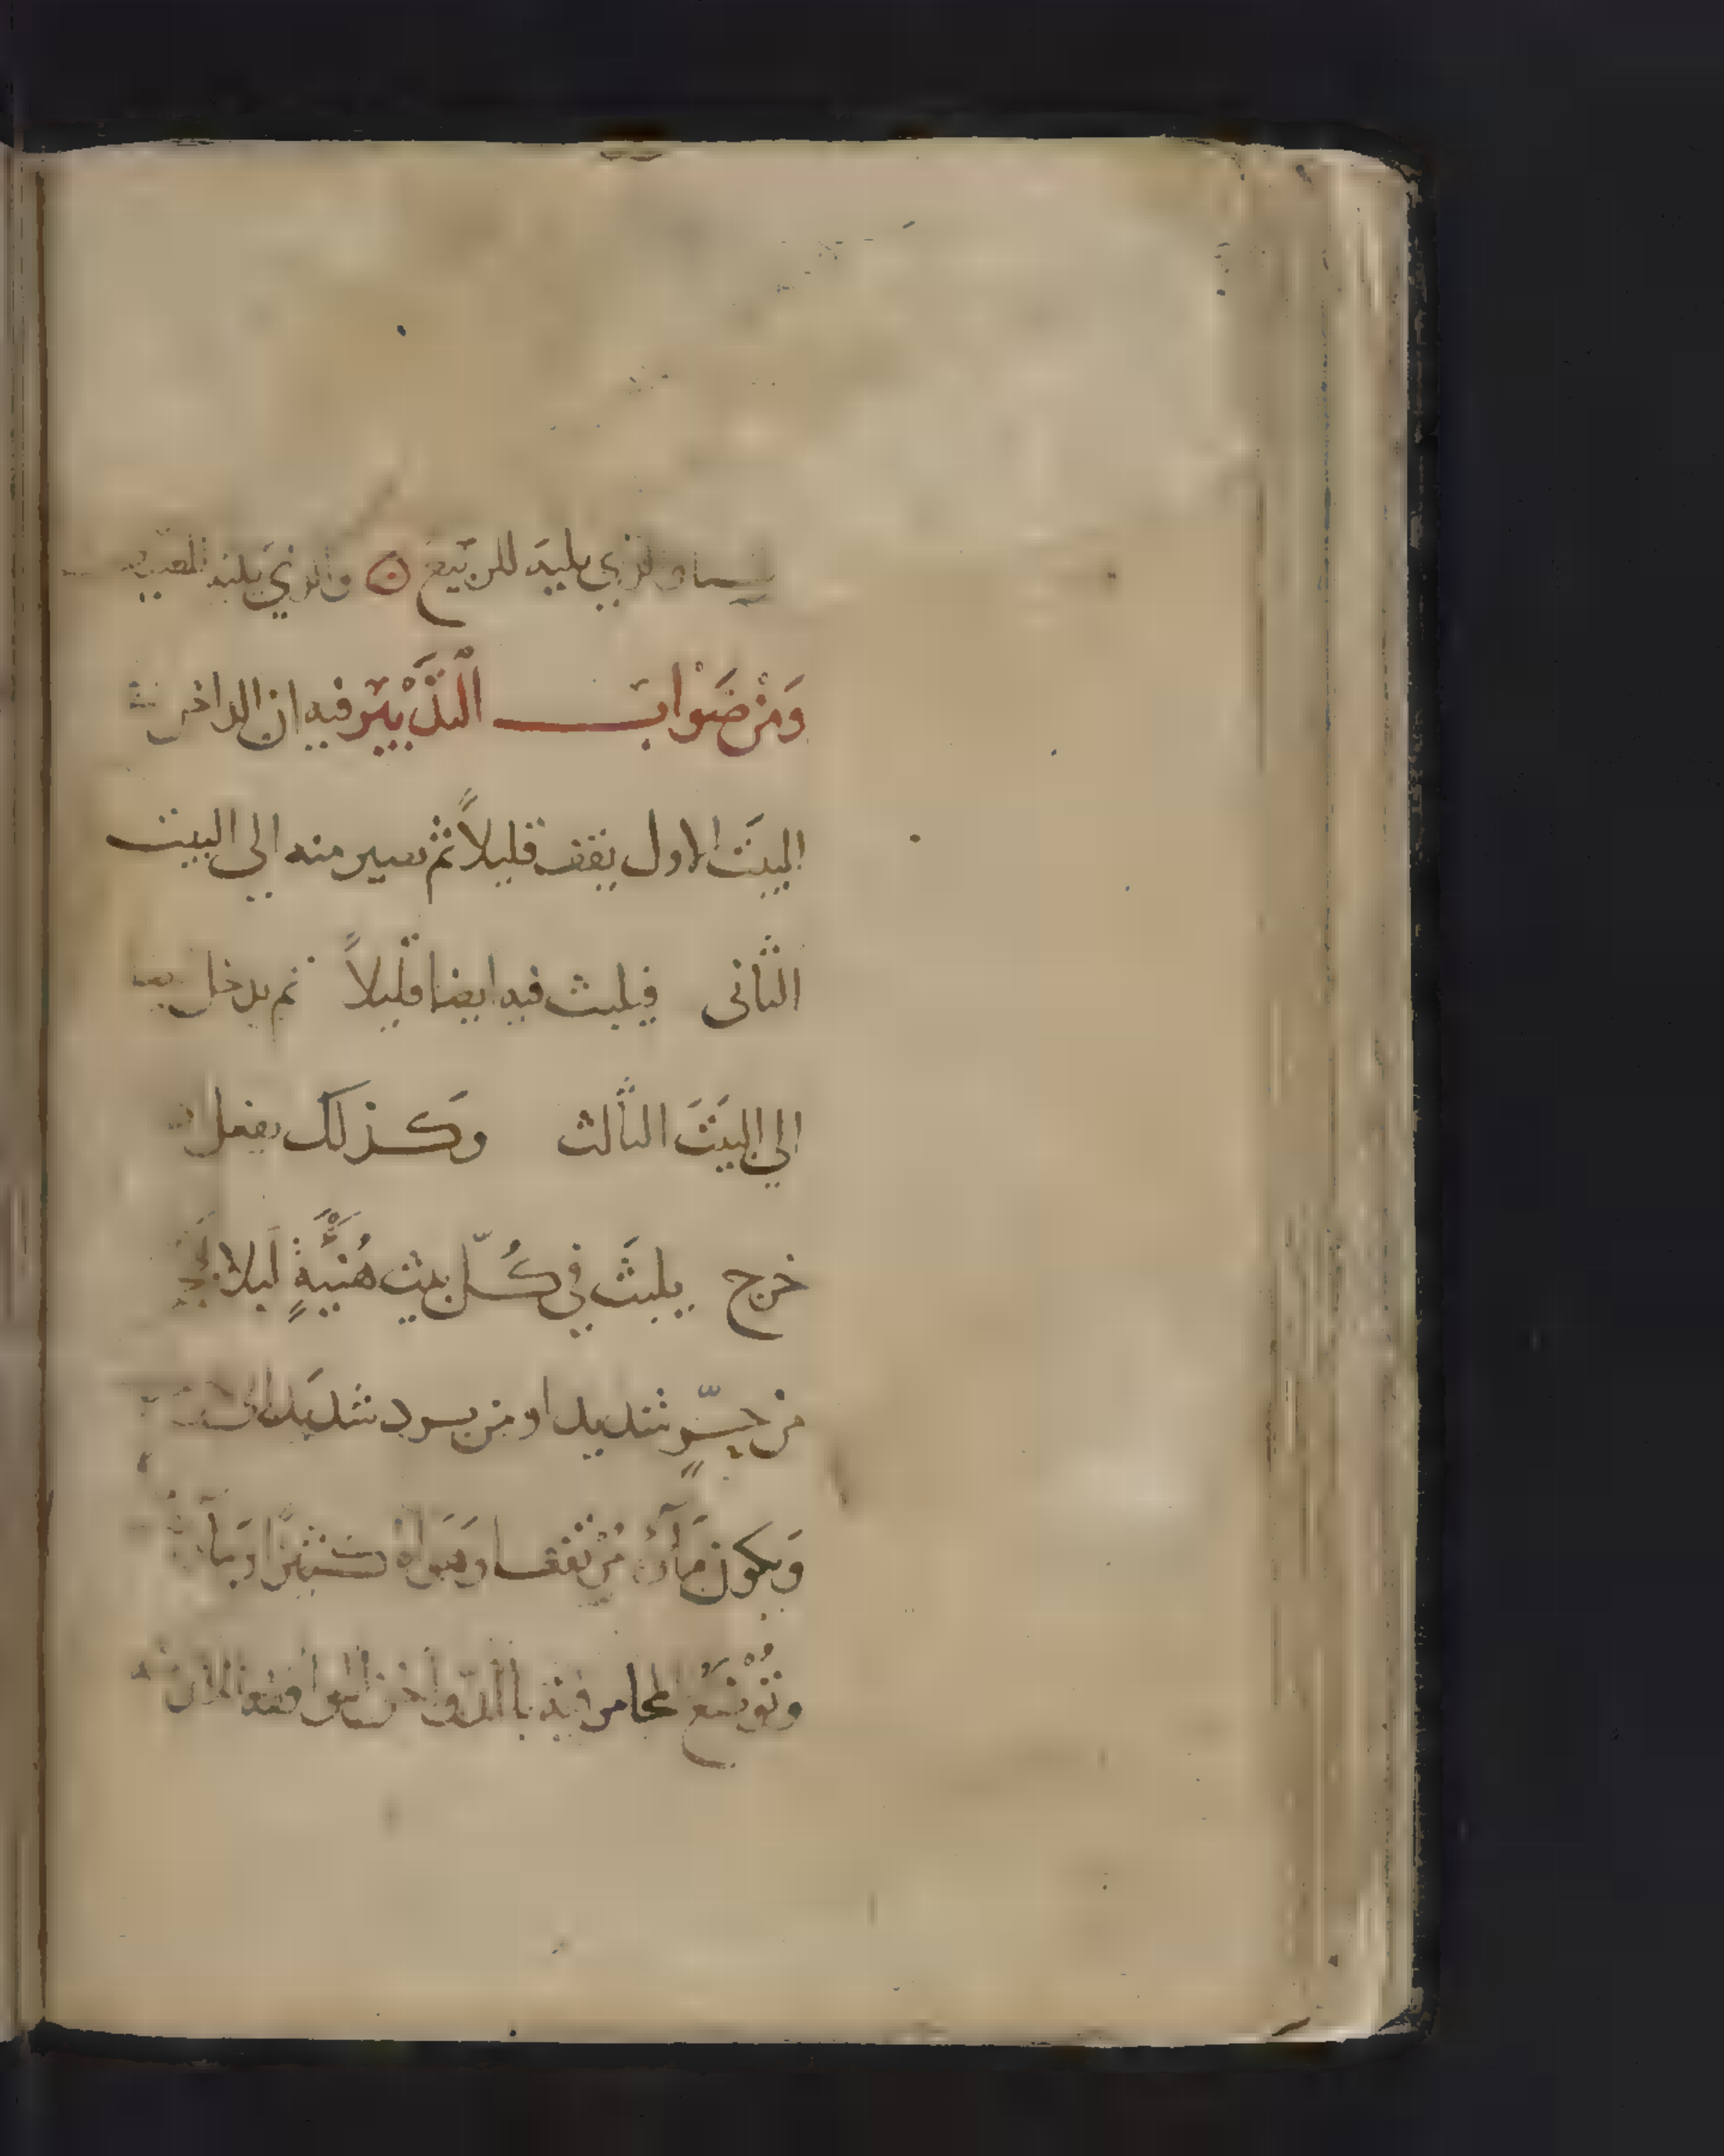 والذي يليه للربيع والذي يليه للصيف
وَمنْ صَوَابِ التَّدْبِيْرِ فيه ان الداخل
البيتَ الاول يقف قليلاً ثم يسير منه الي البيت
الثاني فيلبث فيه ايضا قليلاً ثم يدخل
الي البيتَ الثالث وكذلك يفعل
خرج يلبثَ في كُلّ بيت هُنَيْئَةٍ ليلا
من حرٍّ شديد او من برد شديد
وَيكون مَآؤه وهواه كثيرًا
وتُوْضَعُ المجامر فيه بالدواخن